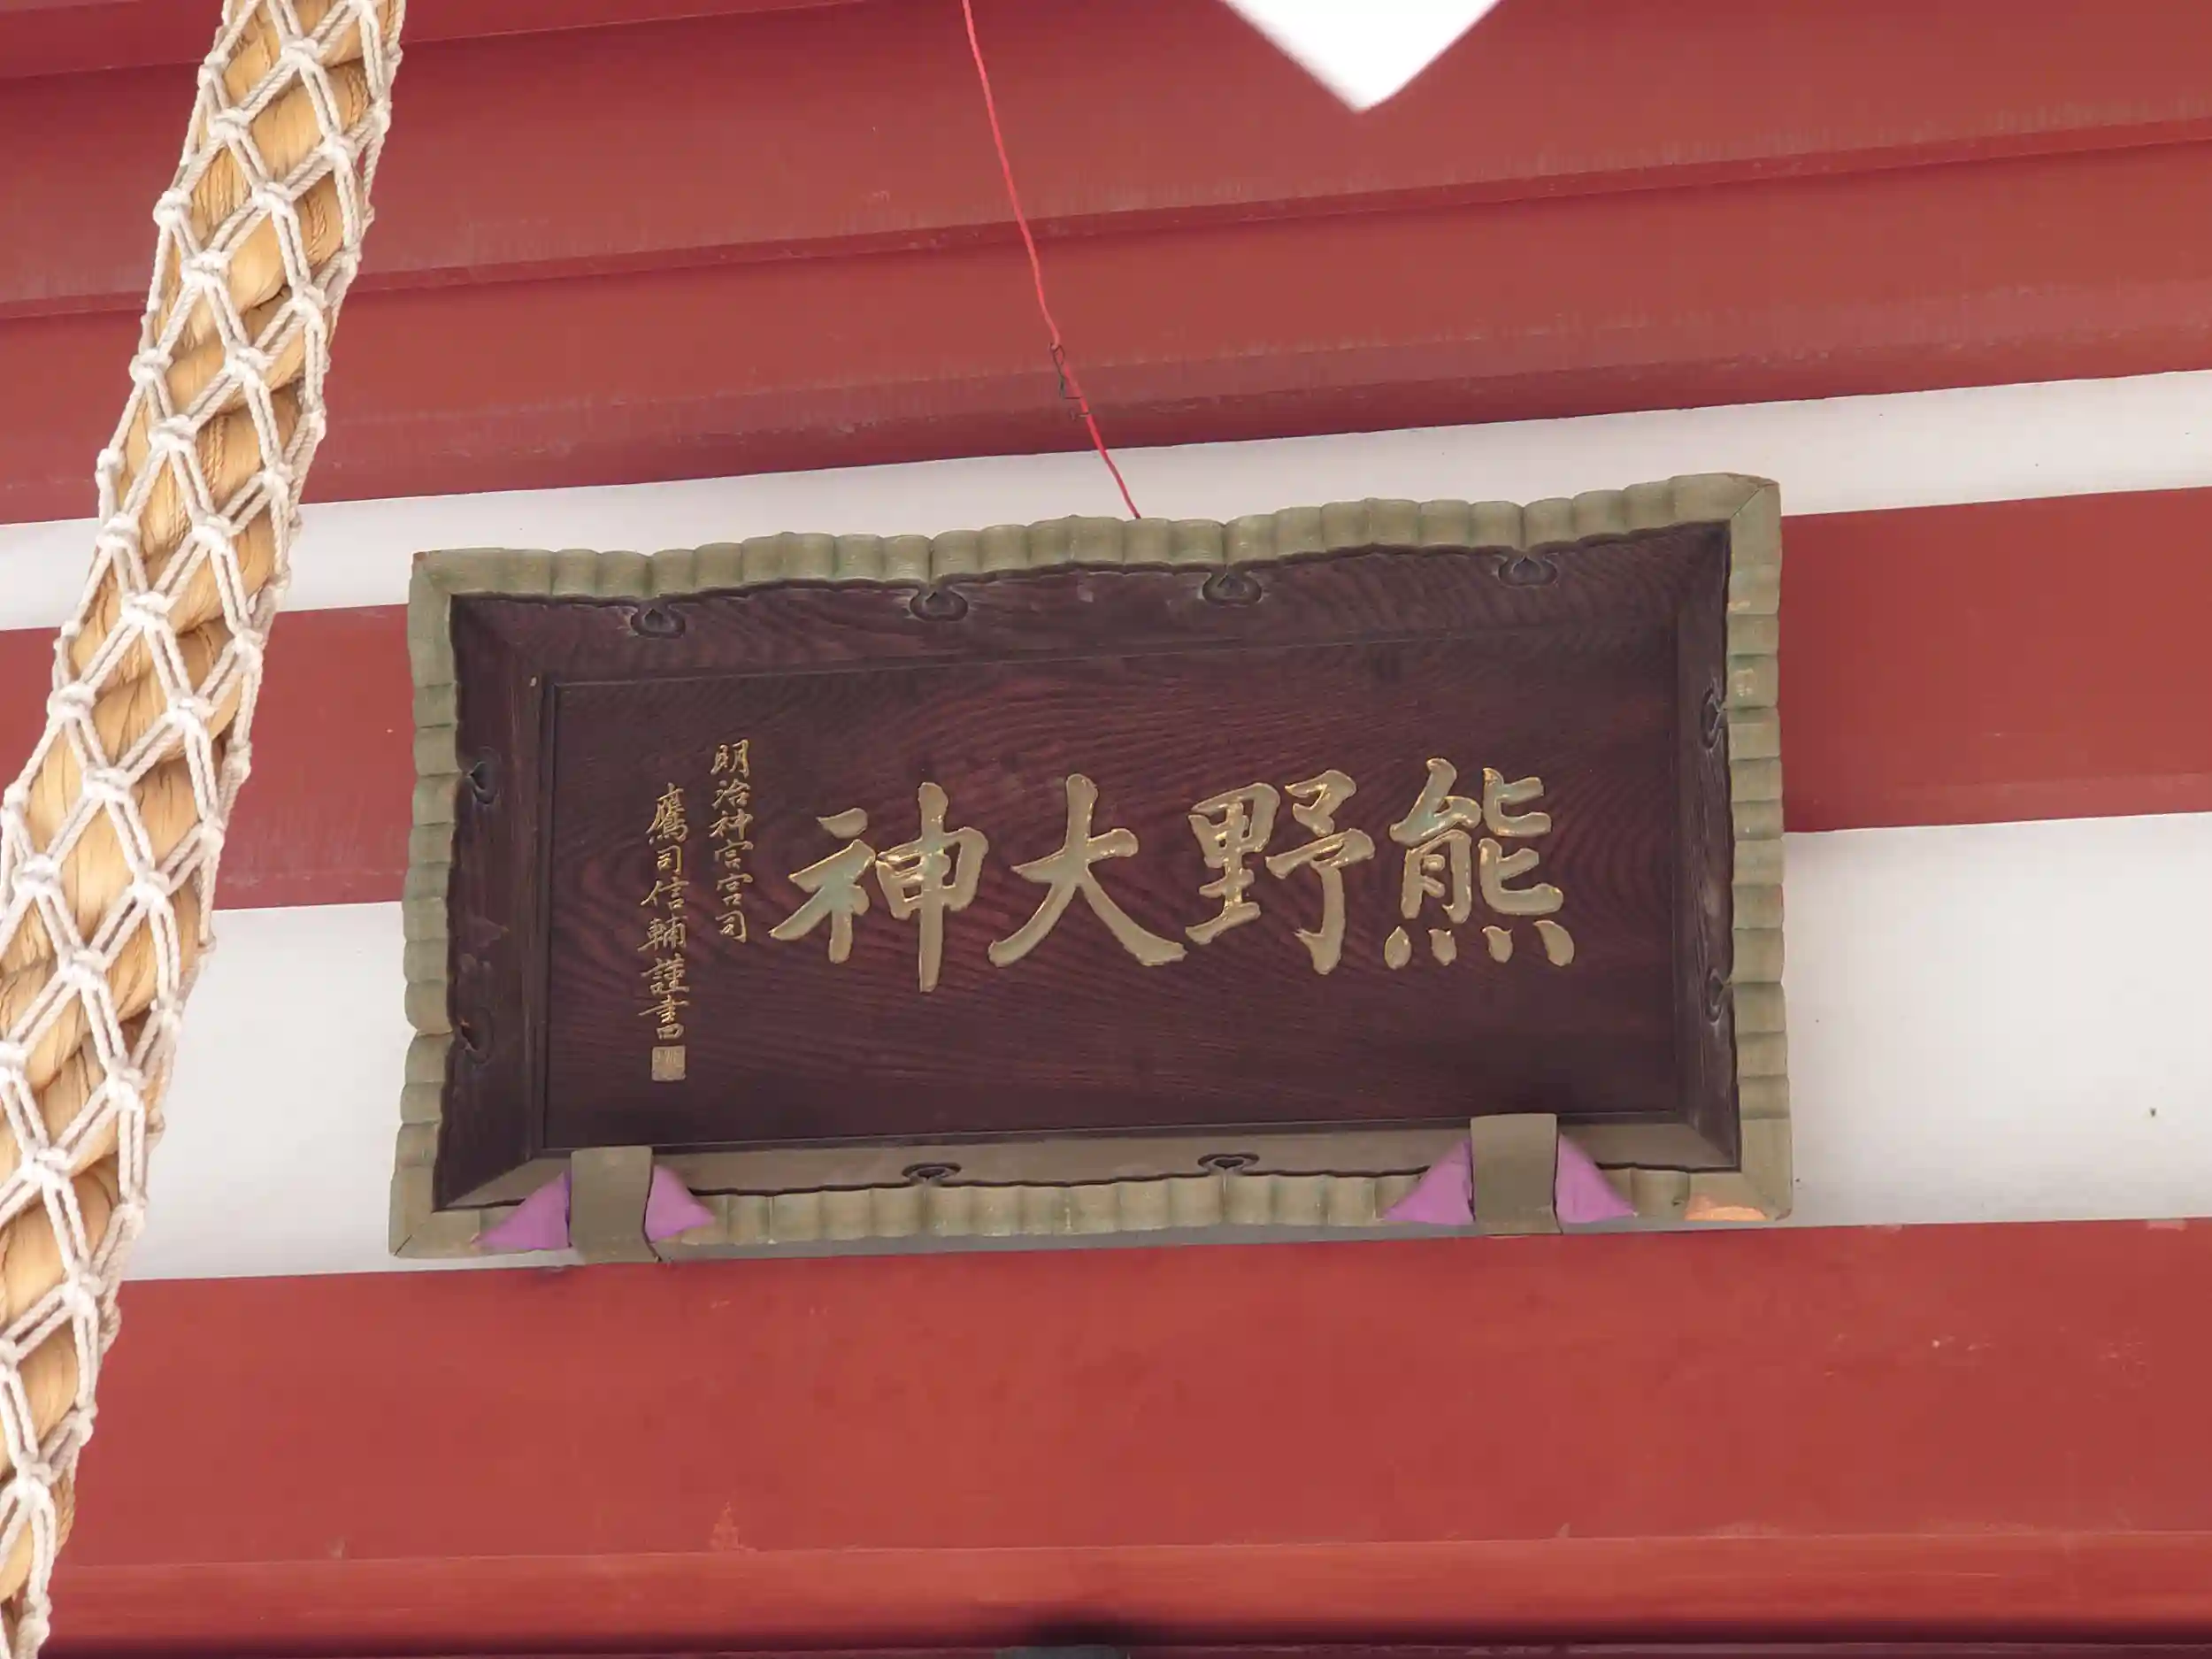 熊野大神
明治神宮宮司
鷹司信輔謹書